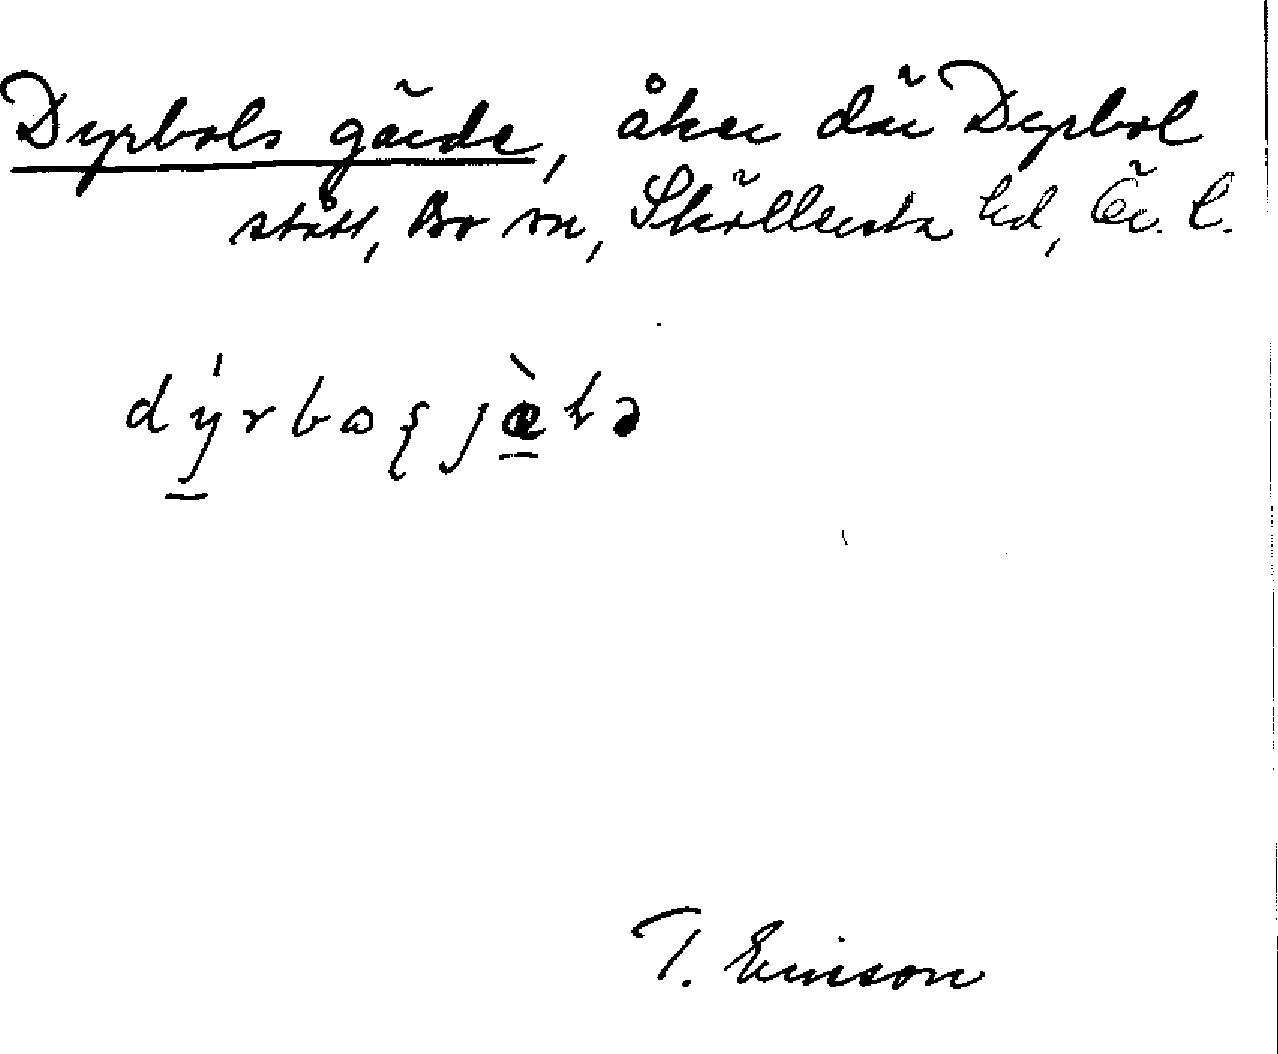 Dyrbols gärde, åker där Dyrbol
stått, Bo sn, Sköllersta hd, Ör. l.
dý̲rboʂjæ̲̀lə
T. Ericson